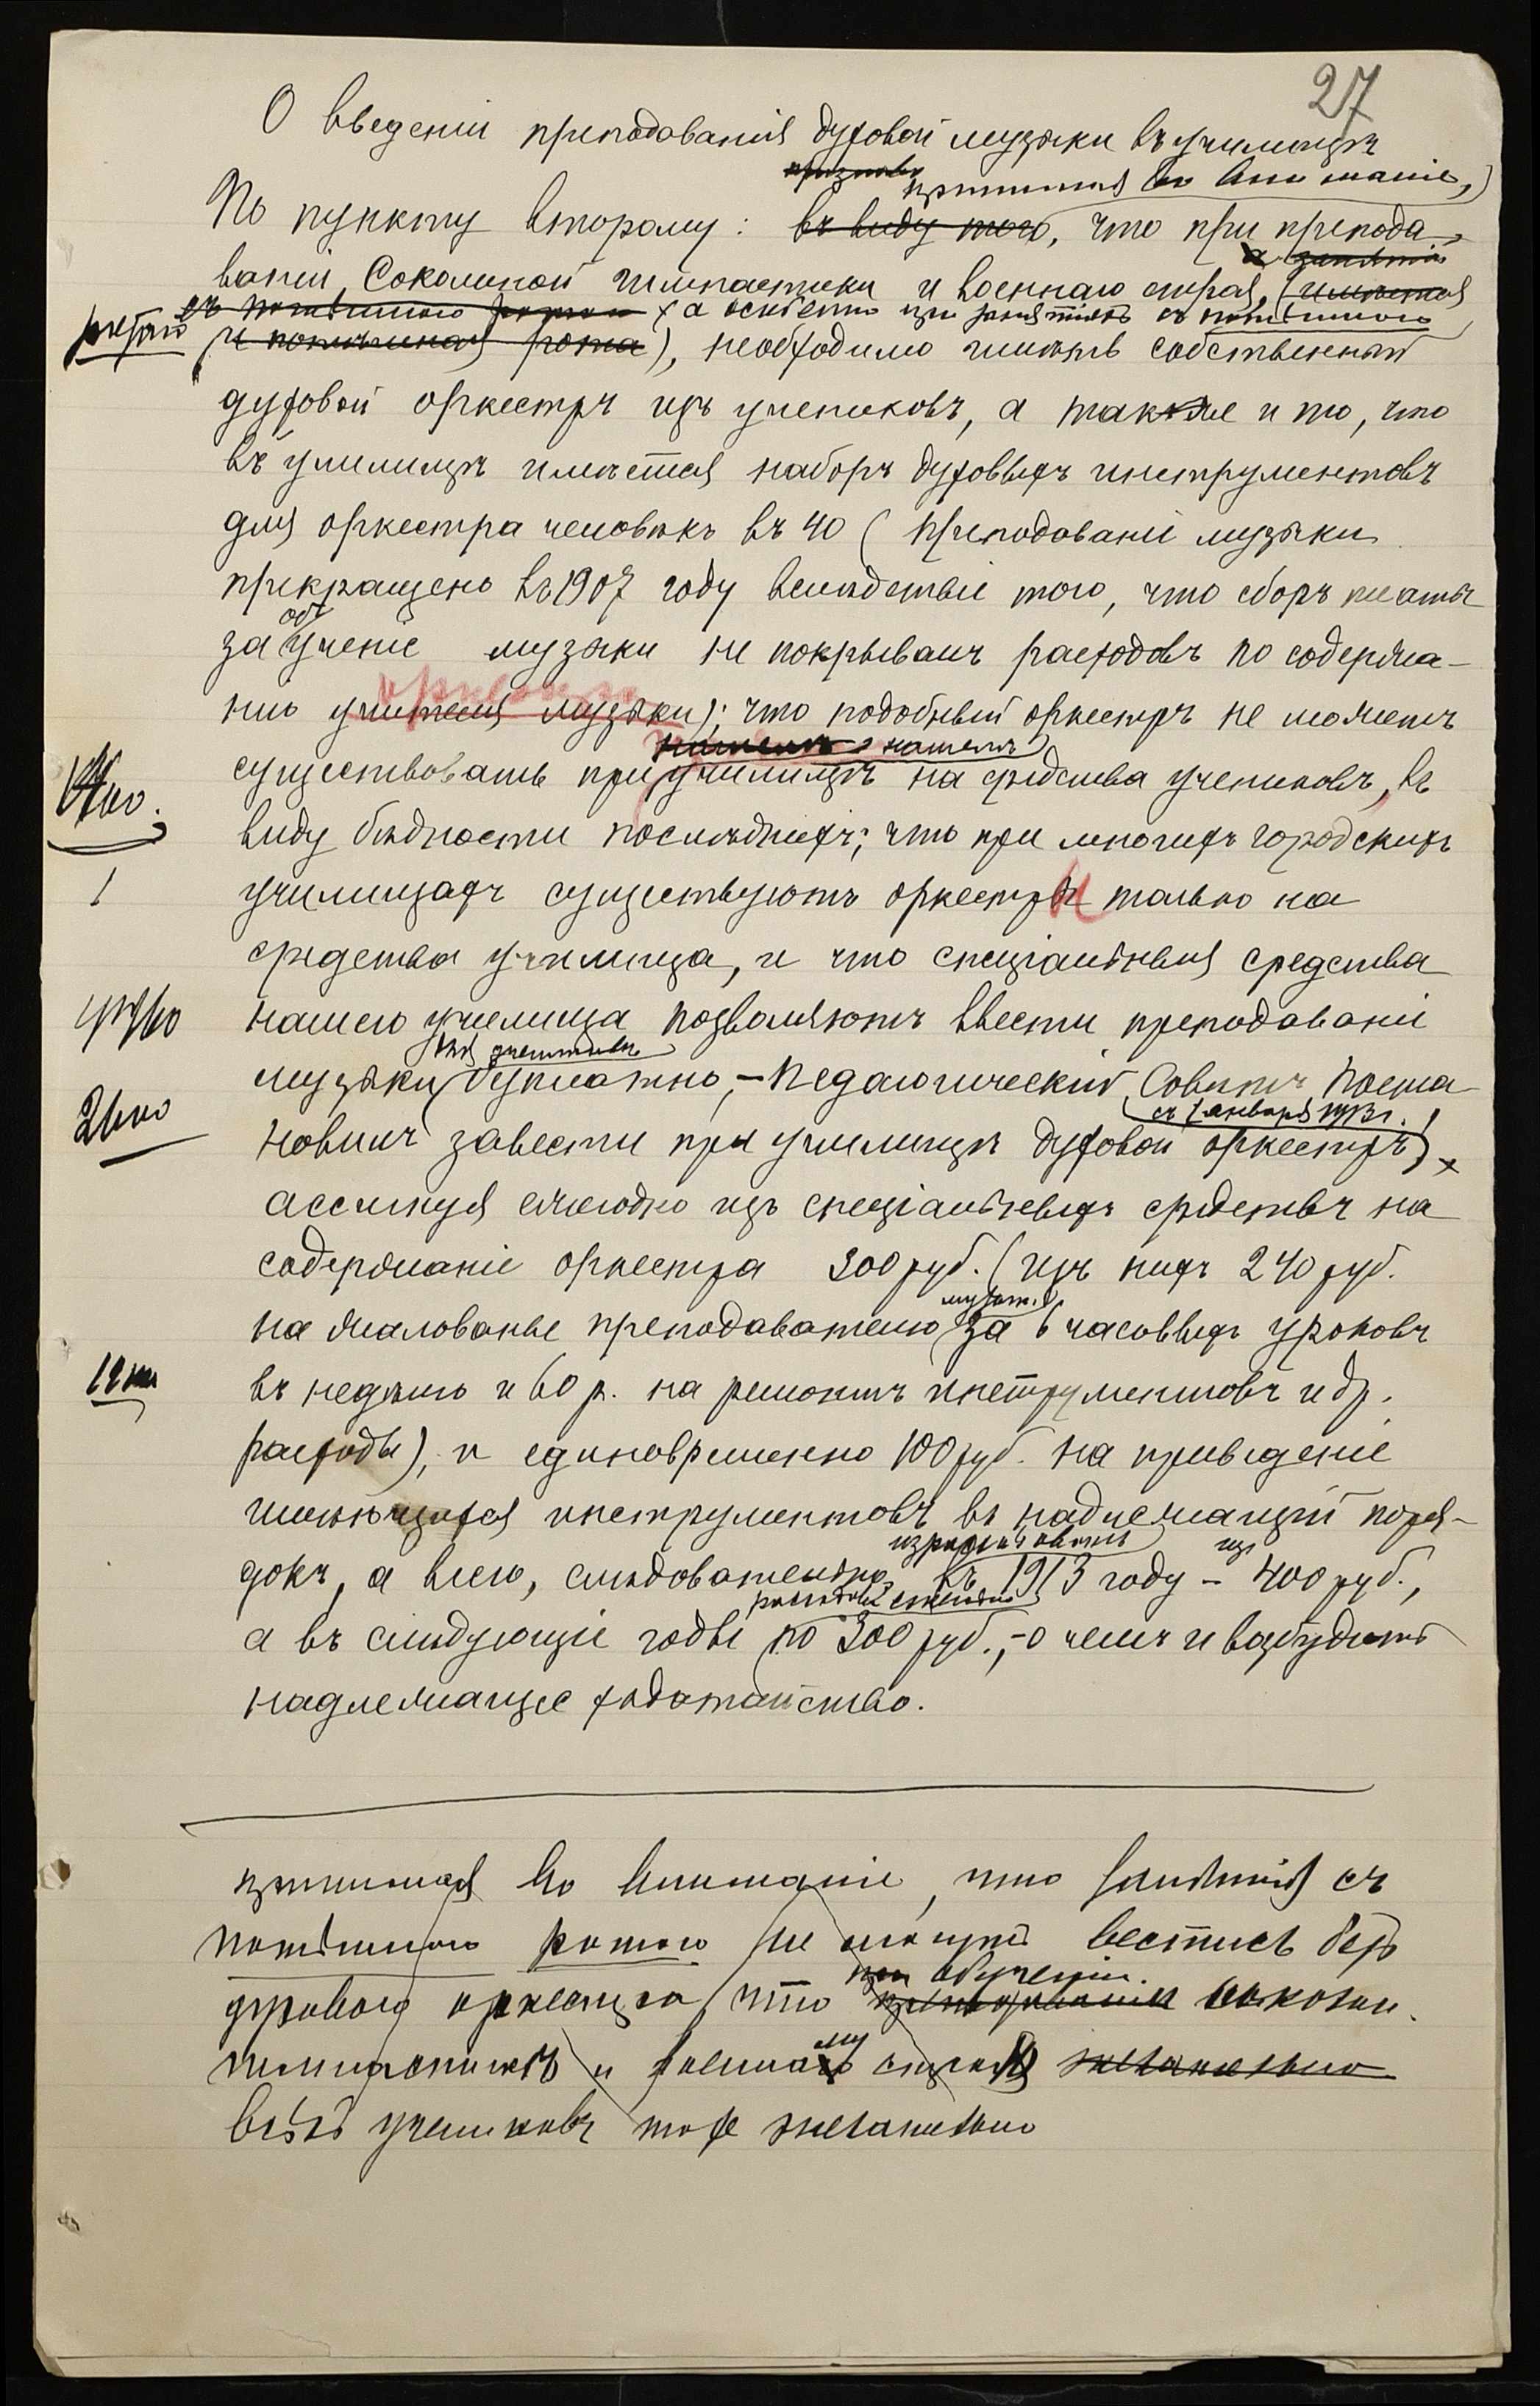 27
О введеніи преподаванія духовой музыки въ училищѣ
принимая во вниманіе,
По пункту второму: въ виду того, что при препода-
ваніи Сокольской гимнастики и военнаго строя, (имѣется
а занятія
съ потѣшною ротою а особенно при занятіяхъ съ потѣшною
ротой и потѣшная рота), необходимо имѣть собственный
духовой оркестръ изъ учениковъ, а также и то, что
въ училищѣ имѣется наборъ духовыхъ инструментовъ
для оркестра человѣкъ въ 40 (преподованіе музыки
прекращено въ 1907 году вслѣдствіе того, что сборъ платы
за обученіе музыки не покрывалъ расходовъ по содержа-
нію учителя музыки); что подобный оркестръ не можетъ
нашемъ
существовать при училищѣ на средства учениковъ, въ
виду бѣдности послѣднихъ; что при многихъ городскихъ
1
училищахъ существуютъ оркестры только на
средства училища, и что спеціальныя средства
нашего училища позволяютъ ввести преподаваніе
для учениковъ
музыки безплатно, – Педагогическій Совѣтъ Поста-
съ 1 января 1913 г.
новилъ завести при училищѣ духовой оркестръ,
ассигнуя ежегодно изъ спеціальныхъ средствъ на
содержаніе оркестра 300 руб. (изъ нихъ 240 руб.
музыки
на жалованье преподавателю за 6 часовыхъ уроковъ
въ недѣлю и 60 р. на ремонтъ инструментовъ и др.
расходы), и единовременно 100 руб. на приведеніе
имѣющихся инструментовъ въ надлежащій поря-
израсходовать
докъ, а всего, слѣдовательно, въ 1913 году – 400 руб.,
расходовать ежегодно
а въ слѣдующіе годы по 300 руб., – о чемъ и возбудить
надлежащее ходатайство.
принимая во вниманіе, что занятія съ
потѣшною ротою не могутъ вестись безъ
при обученіи
духового оркестра, что преподаваніи сокольск.
гимнастикѣ и военному строю желательно
всѣхъ учениковъ тоже желательно